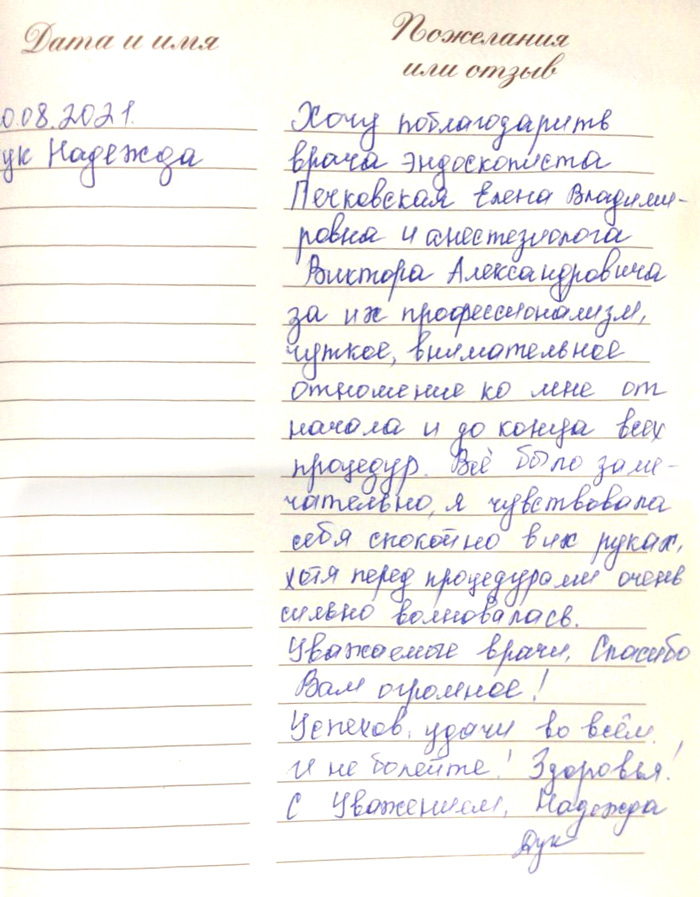 Дата и имя
Пожелания
или отзыв
0.08.2021.
ук Надежда
Хочу поблагодарить
врача эндоскописта
Печковская Елена Владими-
ровна и анестезиолога
Виктора Александровича
за их профессионализм,
чуткое, внимательное
отношение ко мне от
начала и до конца всех
процедур. Всё было заме-
чательно, я чувствовала
себя спокойно в их руках,
хотя перед процедурами очень
сильно волновалась.
Уважаемые врачи, Спасибо
Вам огромное!
Успехов, удачи во всём
и не болейте! Здоровья!
С Уважением, Надежда
Дук